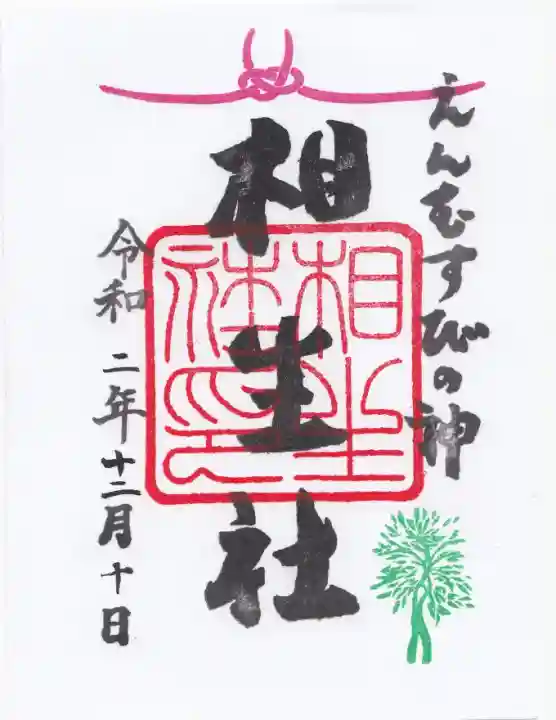 えんむすびの神
相生社
相生社印
令和二年十二月十日